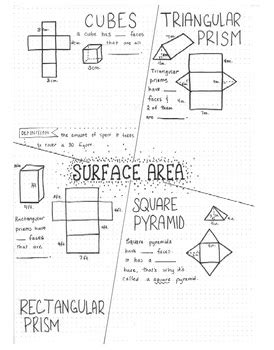 CUBES
a cube has ___ faces
that are all
___.
3cm.
3cm.
3cm.
TRIANGULAR
PRISM
Triangular
prisms
have ___
faces &
2 of them
are ___.
7m.
DEFINITION: the amount of space it takes
to cover a 3D figure
SURFACE AREA
7ft.
4ft.
Rectangular
prisms have
___ faces
that are
___.
RECTANGULAR
PRISM
SQUARE
PYRAMID
Square pyramids
have ___ faces
It has a ___
base, that's why it's
called a square pyramid.